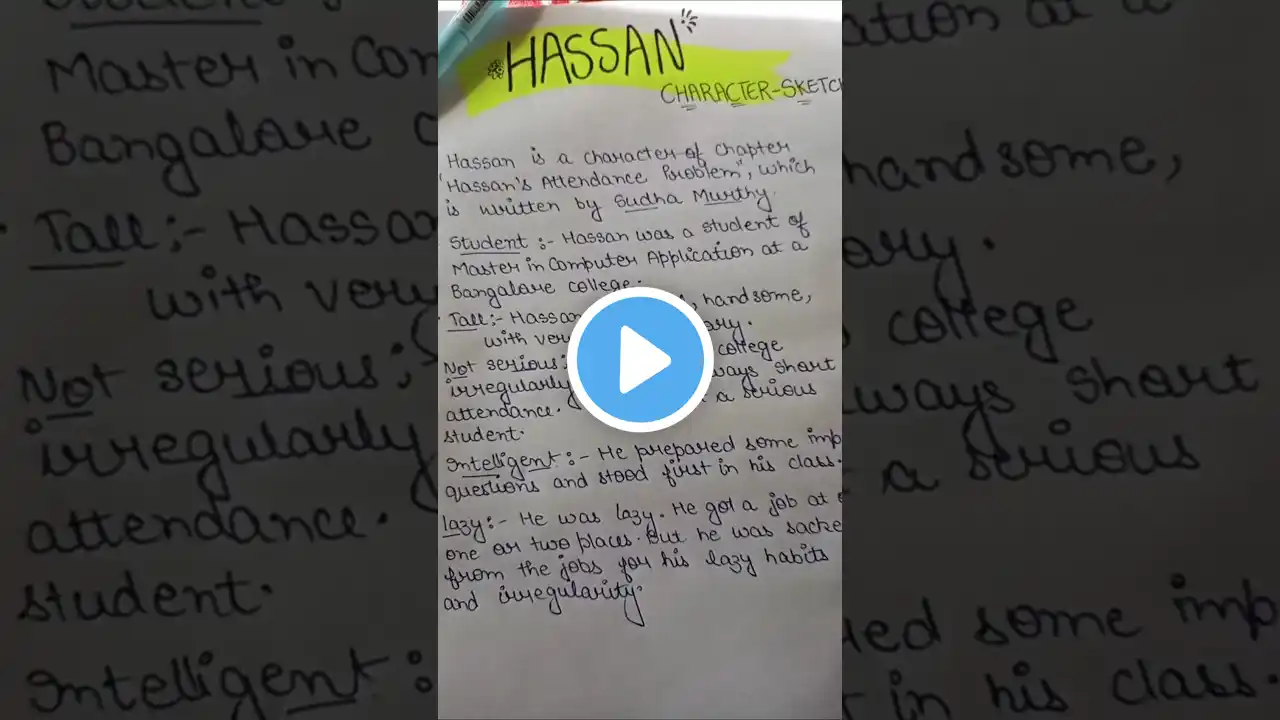 HASSAN
CHARACTER-SKETCH
Hassan is a character of chapter
"Hassan's Attendance Problem", which
is written by Sudha Murthy.
Student :- Hassan was a student of
Master in Computer Application at a
Bangalore college.
Tall :- Hassan handsome,
with very
Not serious: college
irregularly always short
attendance. a serious
student.
Intelligent :- He prepared some imp
questions and stood first in his class.
Lazy :- He was lazy. He got a job at
one or two places. But he was sacke
from the jobs for his lazy habits
and irregularity.